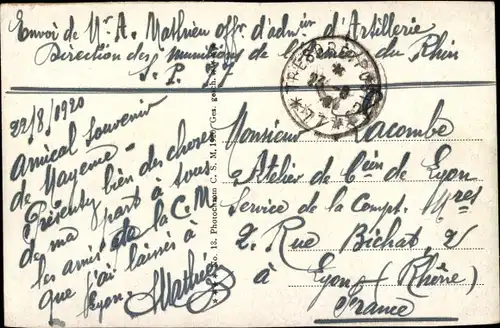 Envoi de Mr A. Mathieu offr d'admon d'Artillerie
Direction des munitions de l'Armée du Rhin
S. P. 77
TRESOR ET POSTES
22/8/1920
Amical souvenir
de Mayence
Présentez bien des choses
de ma part à tous
les amis de la C.M.
que j'ai laissés à
Lyon.
Mathieu
No. 18. Photochrom C. S. M. 1920/Ges. gesch.
Monsieur Lacombe
Atelier de Con de Lyon
Service de la Compt. Mres
2. Rue Bichat, 2
à Lyon (Rhône)
France